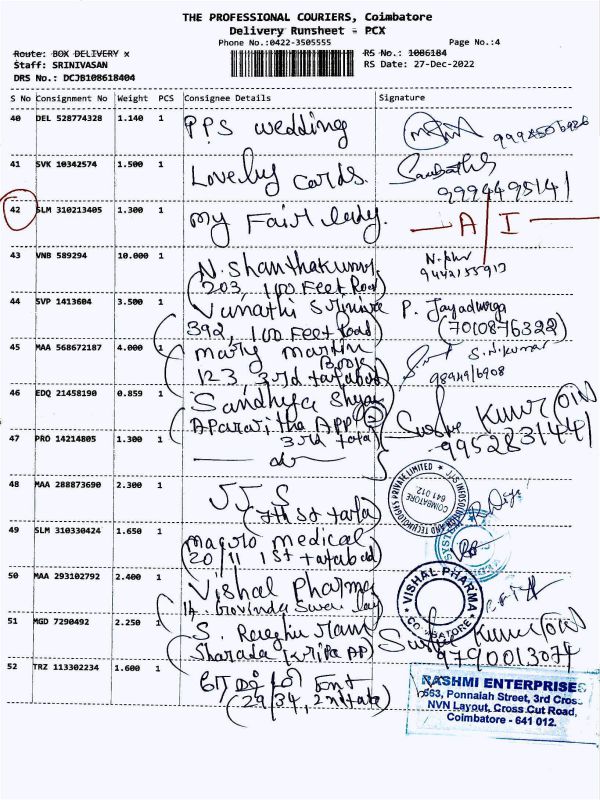 THE PROFESSIONAL COURIERS, Coimbatore
Delivery Runsheet - PCX
Phone No.:0422-3505555 Page No.:4
Route: BOX DELIVERY x RS No.: 1086184
Staff: SRINIVASAN RS Date: 27-Dec-2022
DRS No.: DCJB108618404
S No Consignment No Weight PCS Consignee Details Signature
40 DEL 528774328 1.140 1 PPS wedding
41 SVK 10342574 1.500 1 Lovely cards
9994495141
42 SLM 310213405 1.300 1 My Fair lady. A/I
43 VNB 589294 10.000 1 N. Shanthakumar
203, 100 Feet Road
44 SVP 1413604 3.500 1 Vanathi P. Jayadurga
392, 100 Feet Road (7010876322)
45 MAA 568672187 4.000 1 Mary Martin S.N.kumar
Book
123, 3rd tatabad
46 EDQ 21458190 0.859 1 Sandhya
APP 2
3rd tata 9952831441
47 PRO 14214805 1.300 1 do
48 MAA 288873690 2.300 1 JJS
(7th St tata)
COIMBATORE 641 012.
49 SLM 310330424 1.650 1 Macro medical
20/11 1st tatabad
50 MAA 293102792 2.400 1 Vishal Pharma
VISHAL PHARMA
COIMBATORE
51 MGD 7290492 2.250 1 S. Raghu Ram
Sharada Kripa APP 9790013074
52 TRZ 113302234 1.600 1 Ent
(29/34, 2nd tata)
RASHMI ENTERPRISES
563, Ponnaiah Street, 3rd Cross
NVN Layout, Cross Cut Road,
Coimbatore - 641 012.